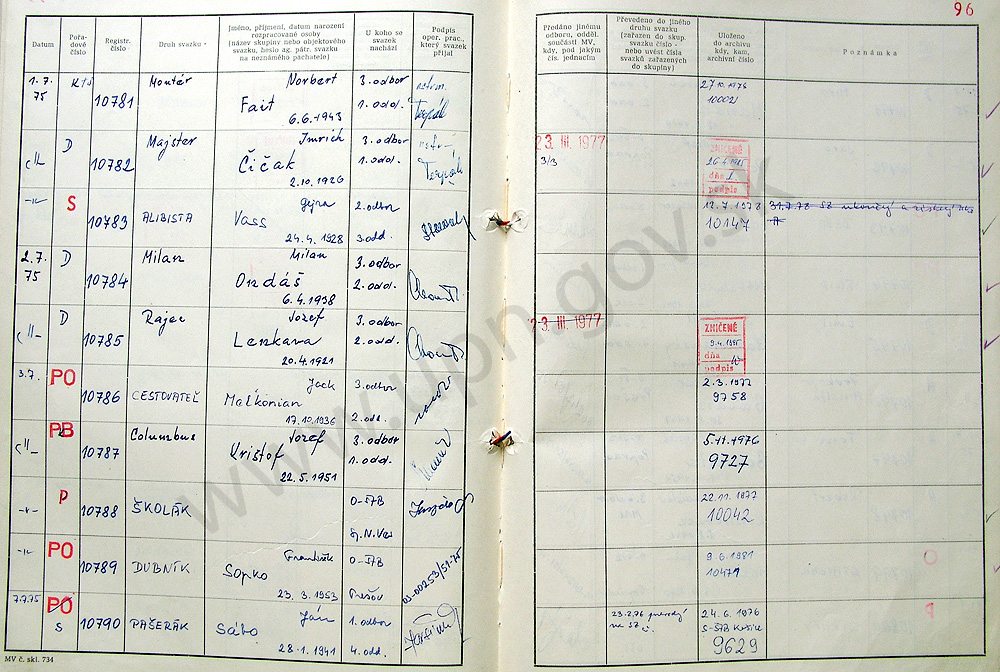 96
Datum
Pořadové číslo
Registr. číslo
Druh svazku
Jméno, příjmení, datum narození rozpracované osoby (název skupiny nebo objektového svazku, heslo ag. pátr. svazku na neznámého pachatele)
U koho se svazek nachází
Podpis oper. prac., který svazek přijal
Předáno jinému odboru, odděl. součásti MV, kdy, pod jakým čís. jednacím
Převedeno do jiného druhu svazku (zařazen do skup. svazku číslo - nebo uvést čísla svazků zařazených do skupiny)
Uloženo do archivu kdy, kam, archivní číslo
Poznámka
1.7. 75 10781 Montér Norbert Fait 6.6.1943 3. odbor 1. odd. Terpák 27.10.1976 10002
D 10782 Majster Imrich Čičak 2.10.1926 3. odbor 1. odd. Terpák 23. III. 1977 3/3 ZNIČENÉ dňa podpis
S 10783 ALIBISTA Gejza Vass 24.4.1928 2. odbor 3. odd. 12.7.1978 10147
2.7. 75 D 10784 Milan Milan Ondáš 6.4.1938 3. odbor 2. odd.
D 10785 Rajec Jozef Lenkava 20.4.1921 3. odbor 2. odd. 23. III. 1977 ZNIČENÉ 9.4.1985 dňa podpis
3.7. PO 10786 CESTOVATEĽ Jack Melkonian 17.10.1936 3. odbor 2. odd. 2.3.1977 9758
PB 10787 Columbus Jozef Krištof 22.5.1951 3. odbor 1. odd. 5.11.1976 9727
P 10788 ŠKOLÁK O-ŠTB Sp.N.Ves 22.11.1977 10042
PO 10789 DUBNÍK František Sopko 23.3.1953 O-ŠTB Prešov 9.6.1981 10479
7.7.75 PO S 10790 PAŠERÁK Ján Sábo 28.1.1941 1. odbor 4. odd. 23.2.76 24.6.1976 S-ŠTB Košice 9629
MV č. skl. 734
www.upn.gov.sk